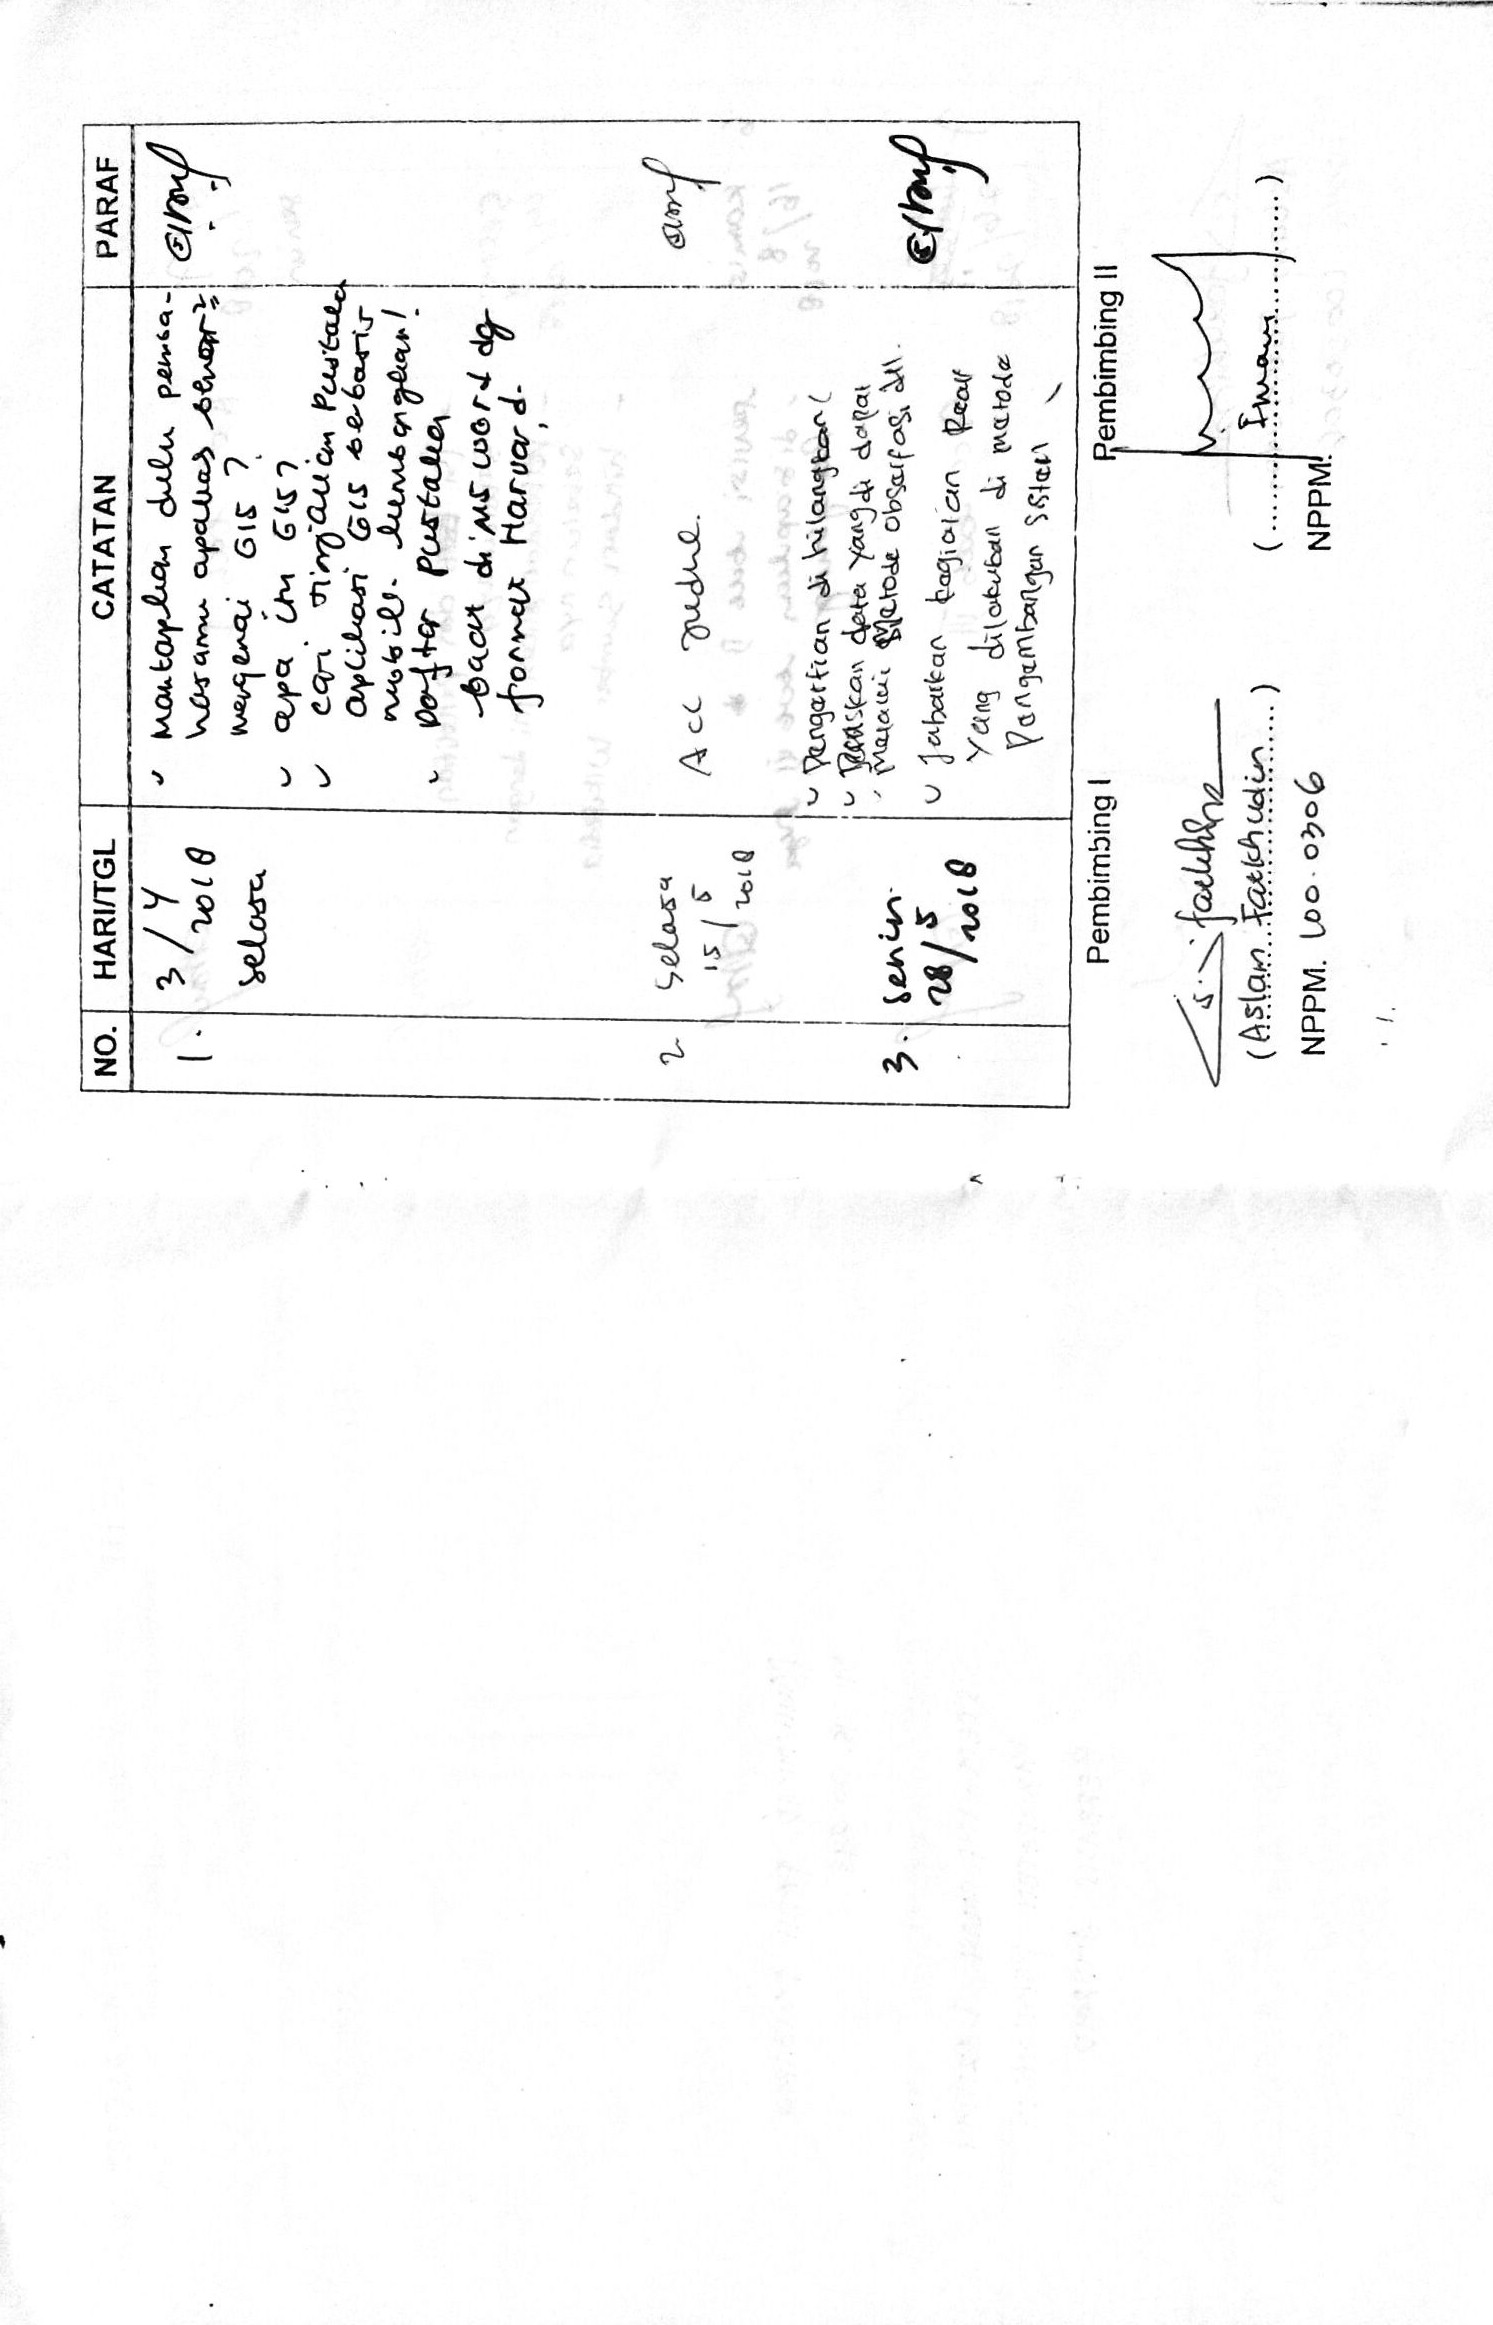 NO. HARI/TGL CATATAN PARAF
1. 3/4 2018
Selasa
Mantapkan dulu pemba-
hasanmu apakah benar2
mengenai GIS ?
apa itu GIS ?
cari tinjauan pustaka
aplikasi GIS berbasis
mobile. kembangkan!
Daftar Pustaka
buat di MS Word dg
format Harvard.
2 Selasa
15/5
2018
Acc Judul.
3. Senin
28/5
2018
Pengertian di hilangkan
Jelaskan data yang di dapat
melalui Metode obserfasi dll.
Jabarkan kegiatan Real
yang dilakukan di metode
Pengembangan sistem
Pembimbing I
(Aslam Fatkhudin)
NPPM. L00.0306
Pembimbing II
(Imam)
NPPM.